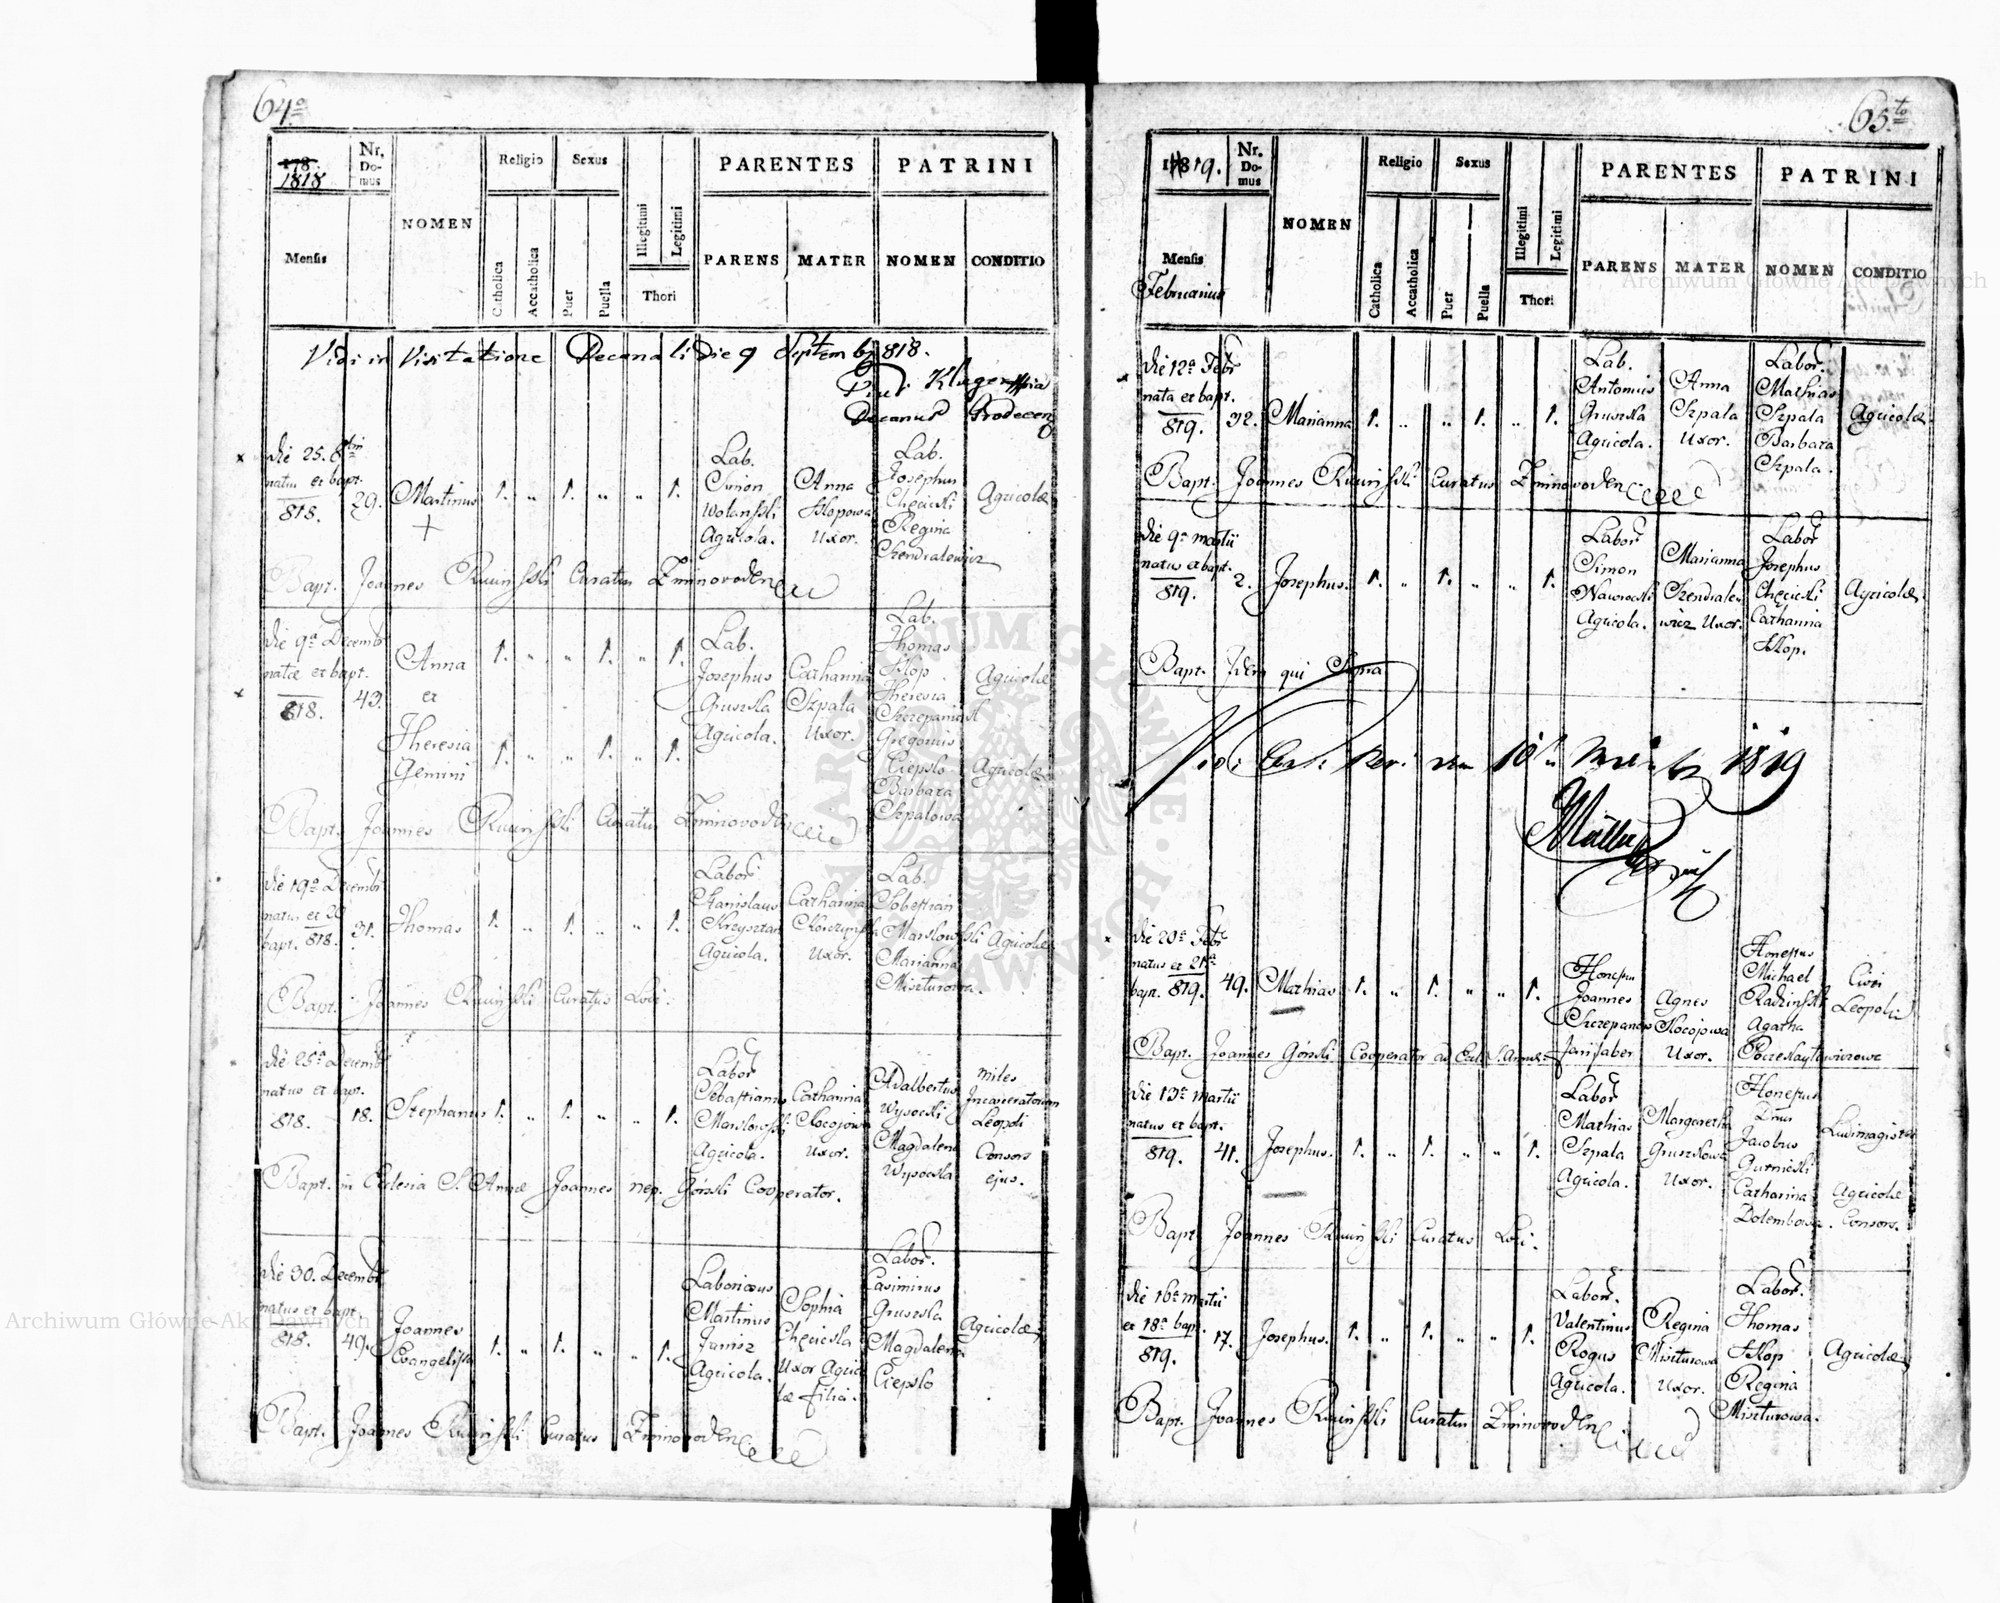 64º
178
1818
Nr.
Do-
mus
NOMEN
Religio
Sexus
PARENTES
PATRINI
Mensis
Catholica
Accatholica
Puer
Puella
Illegitimi
Legitimi
Thori
PARENS
MATER
NOMEN
CONDITIO
Vidi in Visitatione Decanali die 9 Septemb 818.
Decanus Grodecen
die 25. 8bris
natus et bapt.
818.
29.
Martinus
1. „ 1. „ „ 1.
Lab.
Simon
Wolanski
Agricola.
Anna
Kłopowa
Uxor.
Lab.
Josephus
Chęciski
Regina
Szendralowicz
Agricolæ
Bapt. Joannes Curatus Zimnovoden
die 9ª Decemb
natæ et bapt.
818.
43.
Anna
et
Theresia
Gemini
1. „ „ 1. „ 1.
1. „ „ 1. „ 1.
Lab.
Josephus
Gruszka
Agricola.
Catharina
Szpala
Uxor.
Lab.
Thomas
Kłop
Theresia
Gregorius
Ciepslo
Barbara
Szpalowa
Agricolæ
Agricolæ
Bapt. Joannes Curatus Zimnovoden
die 19ª Decemb
natus et 20
bapt. 818.
31.
Thomas
1. „ 1. „ „ 1.
Labor.
Stanislaus
Krzysztan
Agricola.
Catharina
Uxor.
Lab.
Sobestian
Marianna
Miszturowa.
Agricolæ
Bapt. Joannes Curatus Loci.
die 25ª Decemb
natus et bapt.
818.
18.
Stephanus
1. „ 1. „ „ 1.
Labor
Sebastianus
Agricola.
Catharina
Kocojowa
Uxor.
Adalbertus
Wysocki
Magdalena
Wysocka
miles
Incarceratorum
Leopoli
Consors
ejus.
Bapt. in Eclesia S. Annæ Joannes nep. Górski Cooperator.
die 30. Decemb
natus et bapt.
818.
49.
Joannes
Evangelista
1. „ 1. „ „ 1.
Laboriosus
Martinus
Janisz
Agricola.
Sophia
Chęciska
Uxor Agrico
læ filia.
Labor.
Casimirus
Gruszka
Magdalena
Ciepslo
Agricolæ
Bapt. Joannes Curatus Zimnovoden
65to
1819.
Nr.
Do-
mus
NOMEN
Religio
Sexus
PARENTES
PATRINI
Mensis
Februarius
Catholica
Accatholica
Puer
Puella
Illegitimi
Legitimi
Thori
PARENS
MATER
NOMEN
CONDITIO
die 12ª Febr
nata et bapt.
819.
32.
Marianna
1. „ „ 1. „ 1.
Lab.
Antonius
Gruszka
Agricola.
Anna
Szpala
Uxor.
Labor.
Mathias
Szpala
Barbara
Szpala.
Agricolæ
Bapt. Joannes Curatus Zimnovoden
die 9ª martii
natus et bapt.
819.
2.
Josephus.
1. „ 1. „ „ 1.
Labor
Simon
Nawrocki
Agricola.
Marianna
Szendrale
wicz Uxor.
Labor
Josephus
Chęciski
Catharina
Kłop.
Agricolæ
Bapt. Idem qui Supra
1819
Müller
die 20ª Febr
natus et 21ª
bapt. 819.
49.
Mathias
1. „ 1. „ „ 1.
Honestus
Joannes
Szczepanow
Agnes
Kocojowa
Uxor.
Honestus
Michael
Radzinski
Agatha
Cives
Leopolie
Bapt. Joannes Górski Cooperator ad Eccl. S. Annæ
die 13ª martii
natus et bapt.
819.
41.
Josephus.
1. „ 1. „ „ 1.
Labor
Mathias
Szpala
Agricola.
Margaretha
Gruszkowa
Uxor.
Honestus
Dnus
Jacobus
Gurnicki
Catharina
Dolembowa.
Ludimagister
Agricolæ
Consors.
Bapt. Joannes Curatus Loci.
die 16ª martii
et 18ª bapt.
819.
17.
Josephus.
1. „ 1. „ „ 1.
Labor.
Valentinus
Rogus
Agricola.
Regina
Miszturowa
Uxor.
Labor.
Thomas
Kłop
Regina
Miszturowa.
Agricolæ
Bapt. Joannes Curatus Zimnovoden
Archiwum Główne Akt Dawnych
Archiwum Główne Akt Dawnych
ARCHIWUM GŁÓWNE AKT DAWNYCH